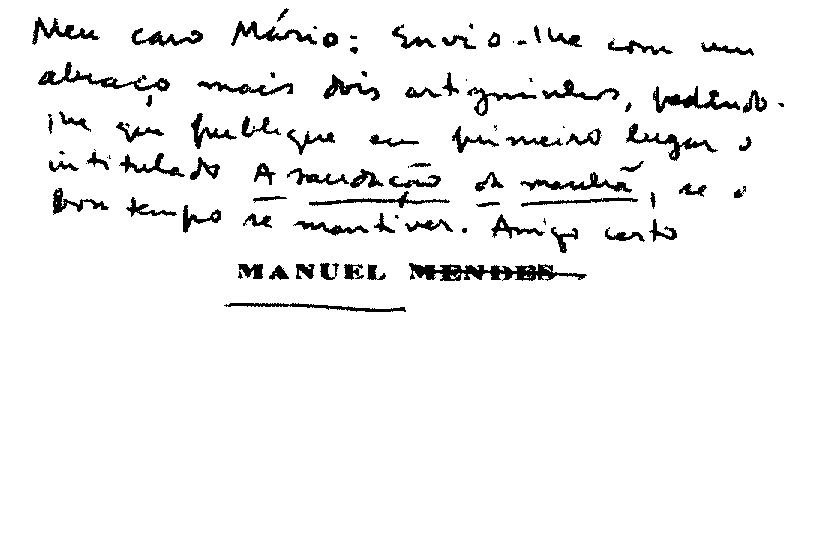 Meu caro Mário: Envio-lhe com um
abraço mais dois artiguinhos, pedindo-
lhe que publique em primeiro lugar o
intitulado A saudação da manhã, se o
bom tempo se mantiver. Amigo certo
MANUEL MENDES